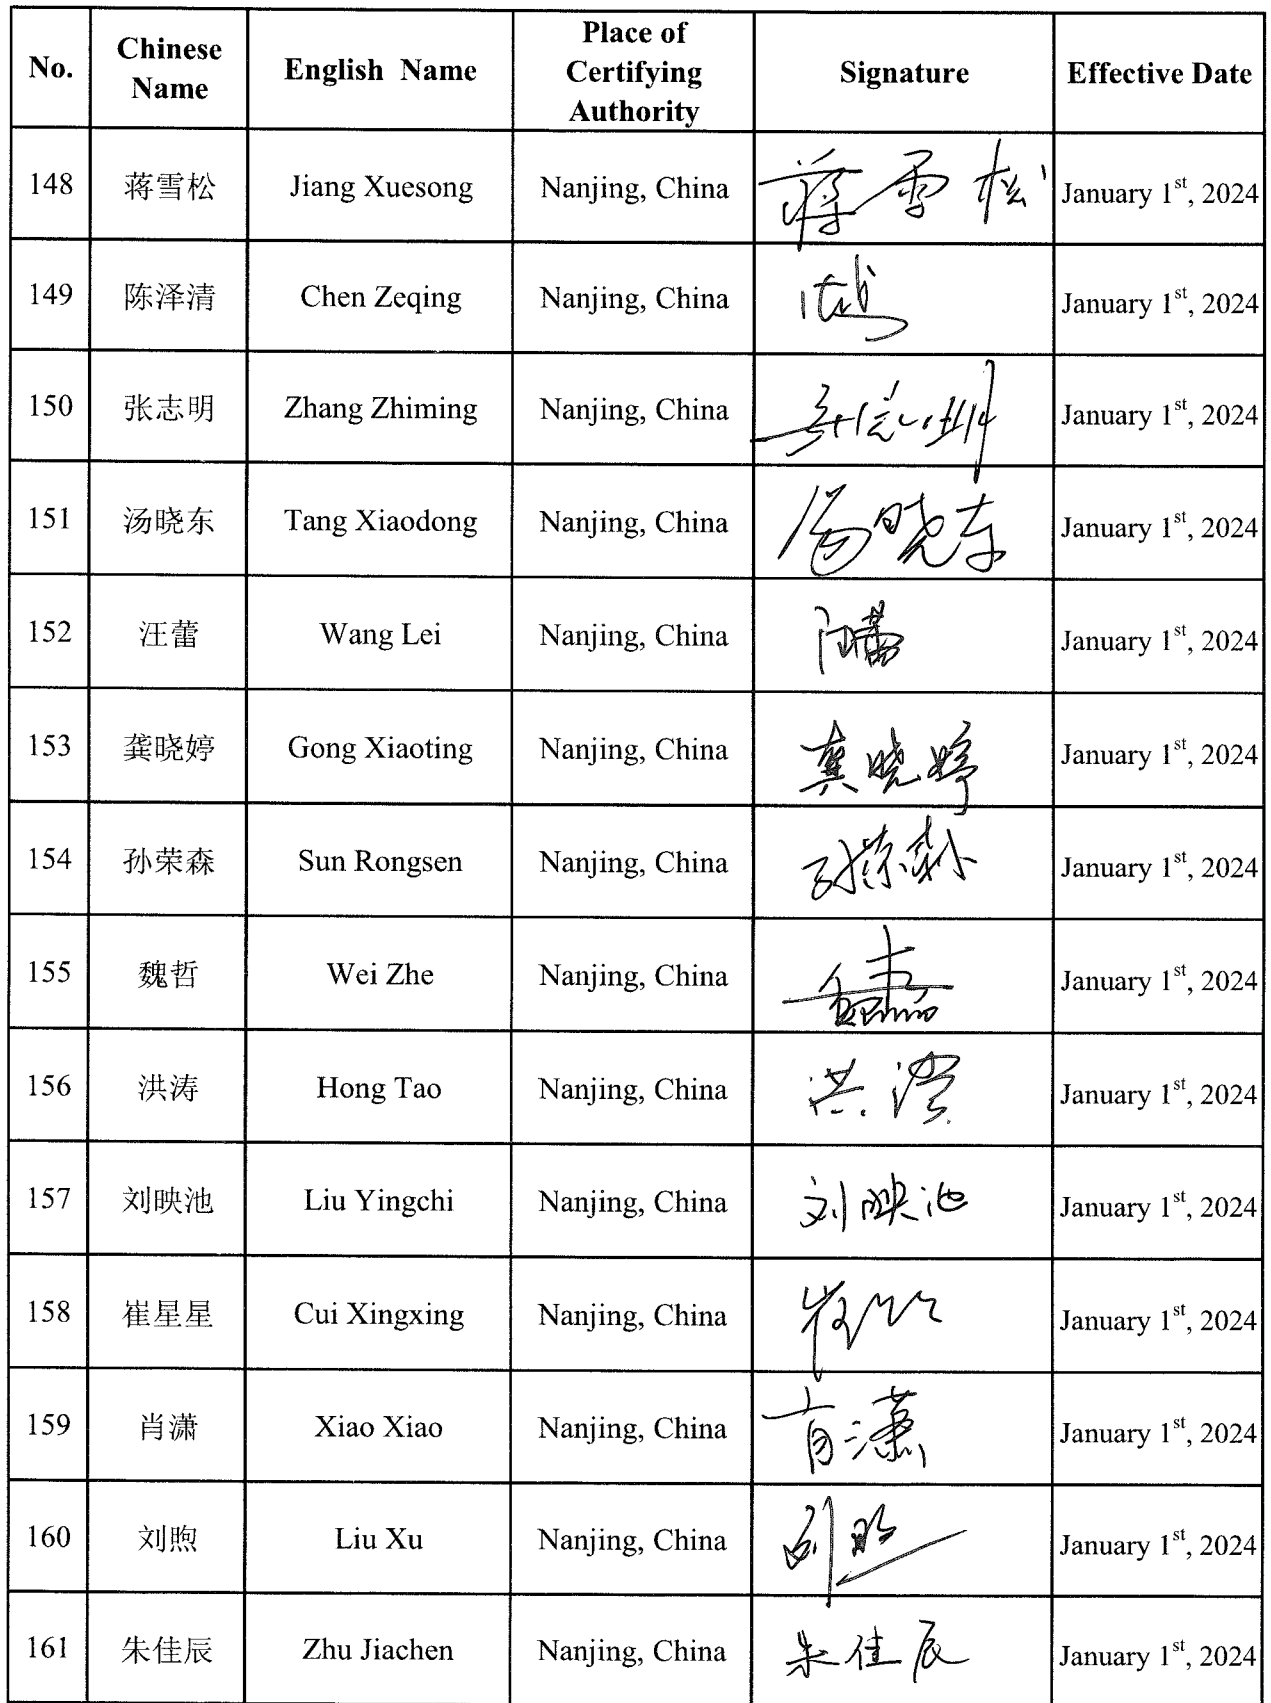 No. Chinese Name English Name Place of Certifying Authority Signature Effective Date
148 蒋雪松 Jiang Xuesong Nanjing, China 蒋雪松 January 1st, 2024
149 陈泽清 Chen Zeqing Nanjing, China January 1st, 2024
150 张志明 Zhang Zhiming Nanjing, China January 1st, 2024
151 汤晓东 Tang Xiaodong Nanjing, China 汤晓东 January 1st, 2024
152 汪蕾 Wang Lei Nanjing, China 汪蕾 January 1st, 2024
153 龚晓婷 Gong Xiaoting Nanjing, China 龚晓婷 January 1st, 2024
154 孙荣森 Sun Rongsen Nanjing, China 孙荣森 January 1st, 2024
155 魏哲 Wei Zhe Nanjing, China January 1st, 2024
156 洪涛 Hong Tao Nanjing, China 洪涛 January 1st, 2024
157 刘映池 Liu Yingchi Nanjing, China 刘映池 January 1st, 2024
158 崔星星 Cui Xingxing Nanjing, China January 1st, 2024
159 肖潇 Xiao Xiao Nanjing, China 肖潇 January 1st, 2024
160 刘煦 Liu Xu Nanjing, China 刘煦 January 1st, 2024
161 朱佳辰 Zhu Jiachen Nanjing, China 朱佳辰 January 1st, 2024